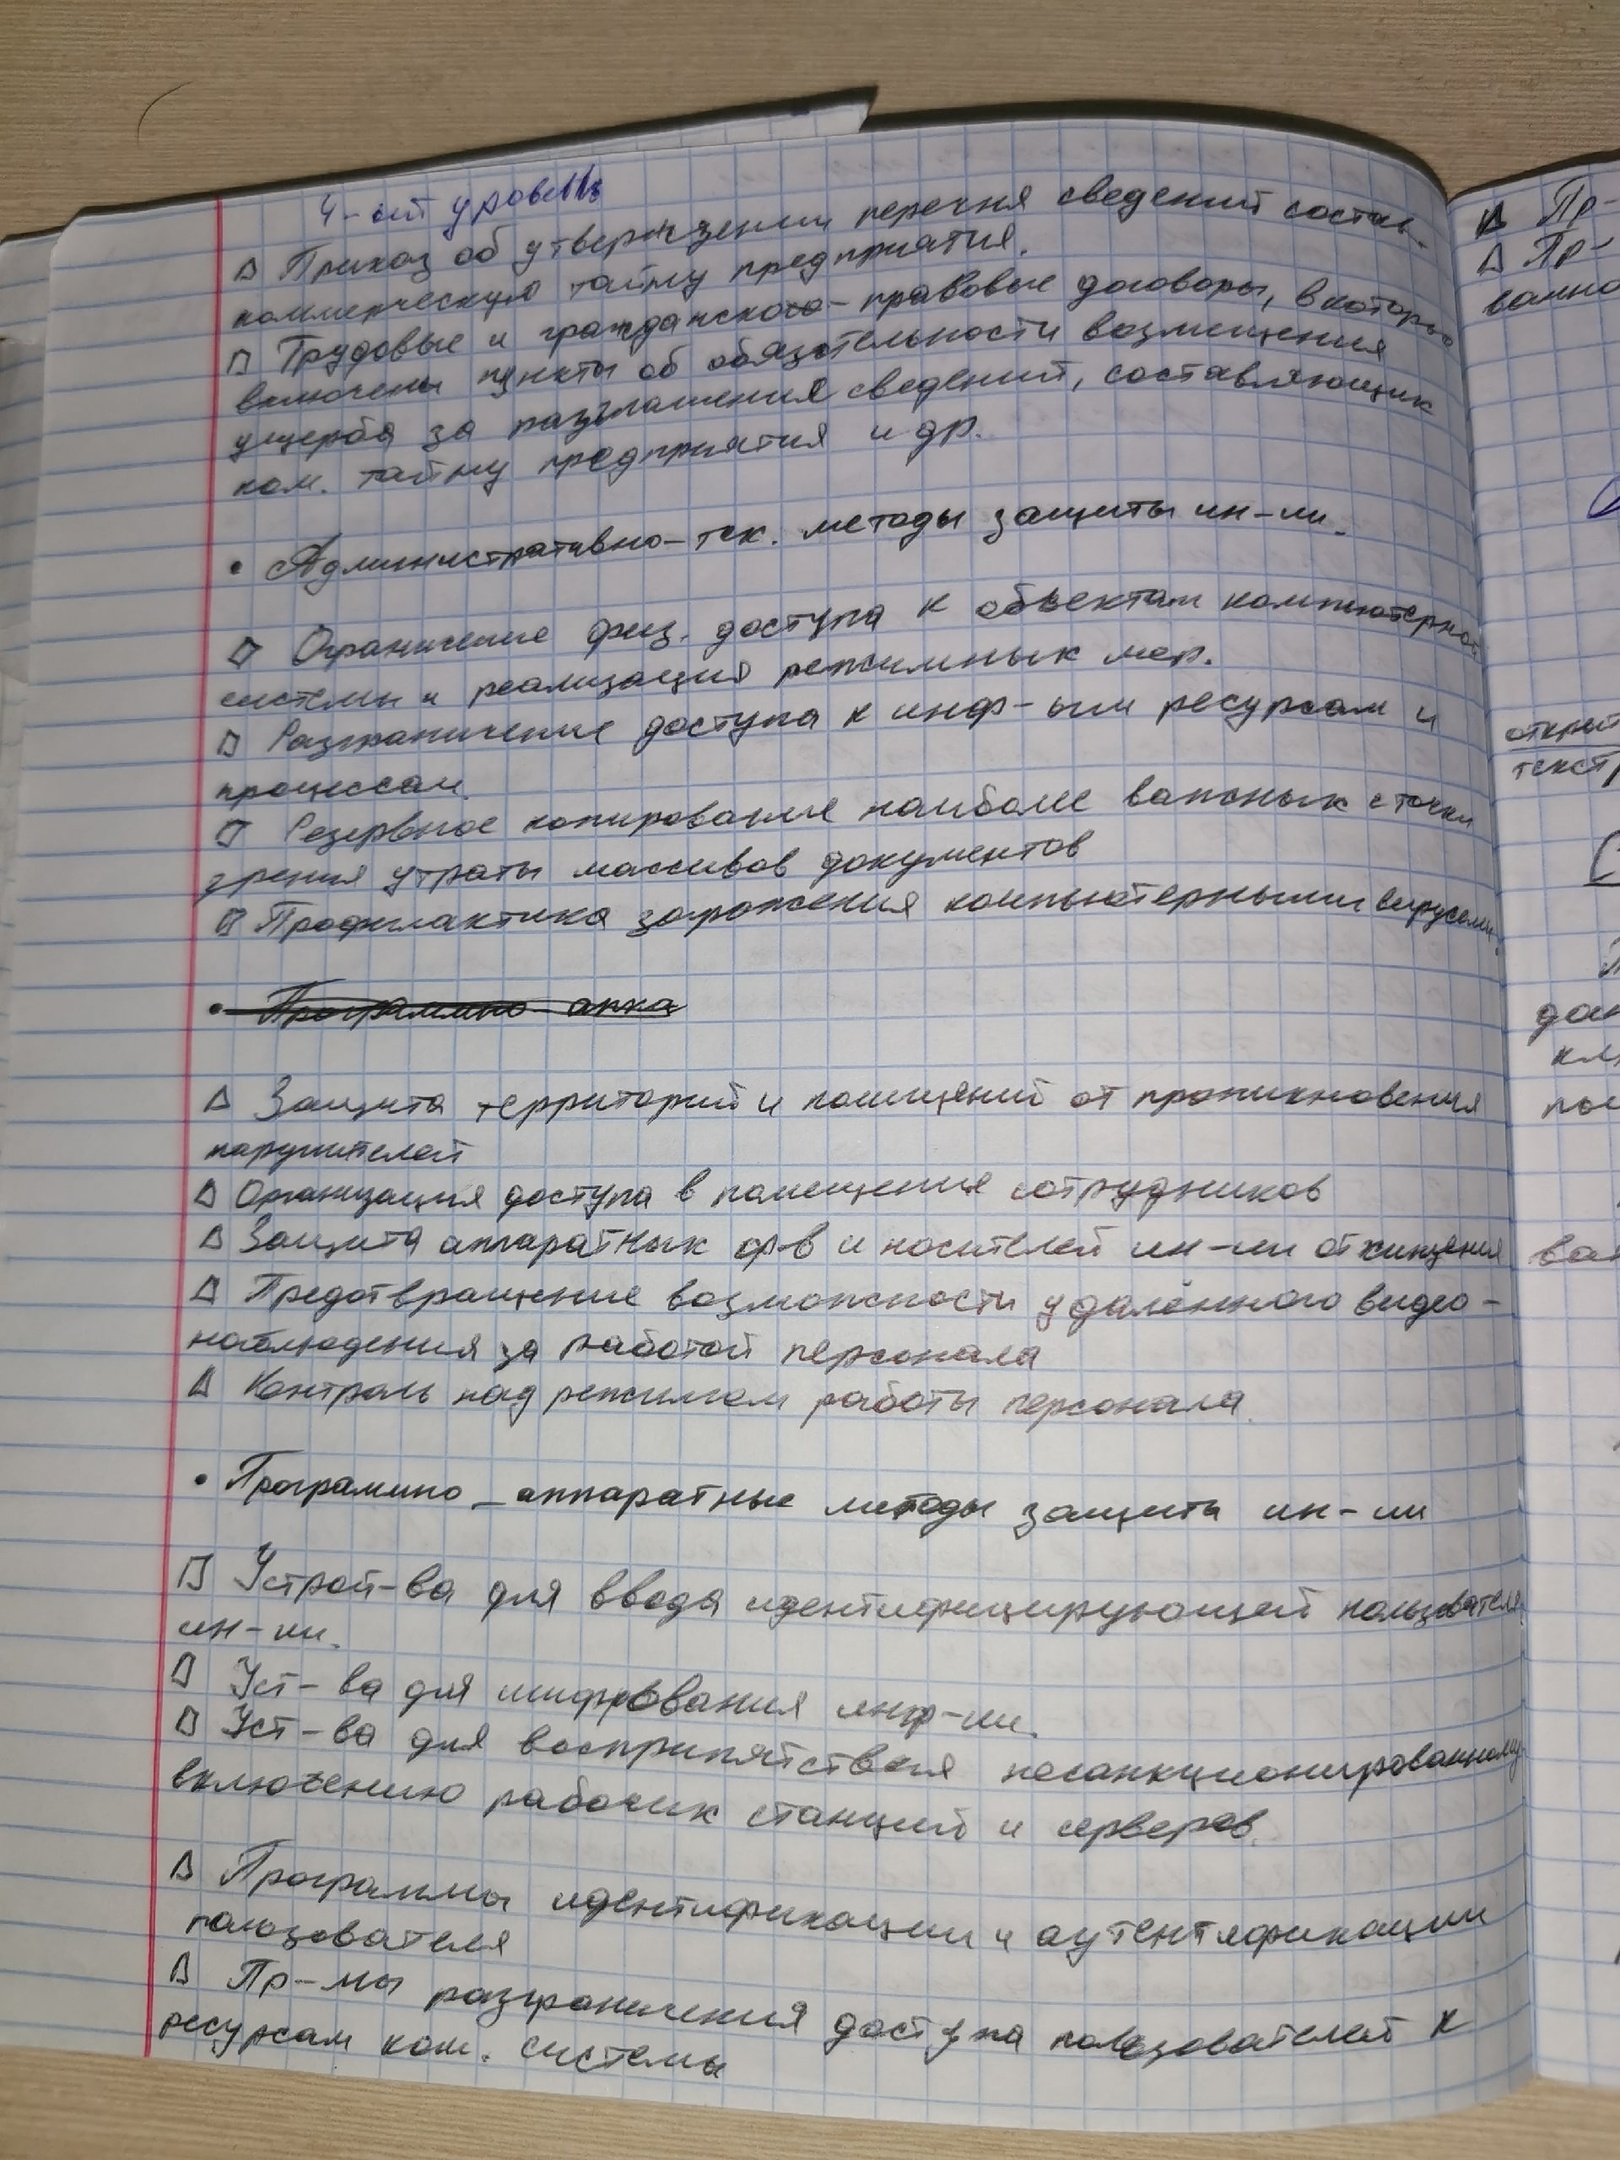 4-ый уровень
Приказ об утверждении перечня сведений состав-
коммерческую тайну предприятия.
Трудовые и гражданского-правовые договоры, в которые
включены пункты об обязательности возмещения
ущерба за разглашения сведений, составляющих
ком. тайну предприятия и др.
• Административно-тех. методы защиты ин-ии.
Ограничение физ. доступа к объектам компьютерной
системы и реализация режимных мер.
Разграничение доступа к инф-ым ресурсам и
процессам.
Резервное копирование наиболее важных с точки
зрения утраты массивов документов
Профилактика заражения компьютерными вирусами.
• Программно-аппа
Защита территорий и помещений от проникновения
нарушителей
Организация доступа в помещения сотрудников
Защита аппаратных ср-в и носителей ин-ии от хищения
Предотвращение возможности удалённого видео-
наблюдения за работой персонала
Контроль над режимом работы персонала.
• Програмино-аппаратные методы защиты ин-ии
Устрой-ва для ввода идентифицирующей пользователя
ин-ии.
Уст-ва для шифрования инф-ии.
Уст-ва для воспрепятствия несанкционированному
включению рабочих станций и серверов.
Программы идентификации и аутентификации
пользователя
Пр-мы разграничения доступа пользователей к
ресурсам ком. системы
Пр-
Пр-
открыт
текст